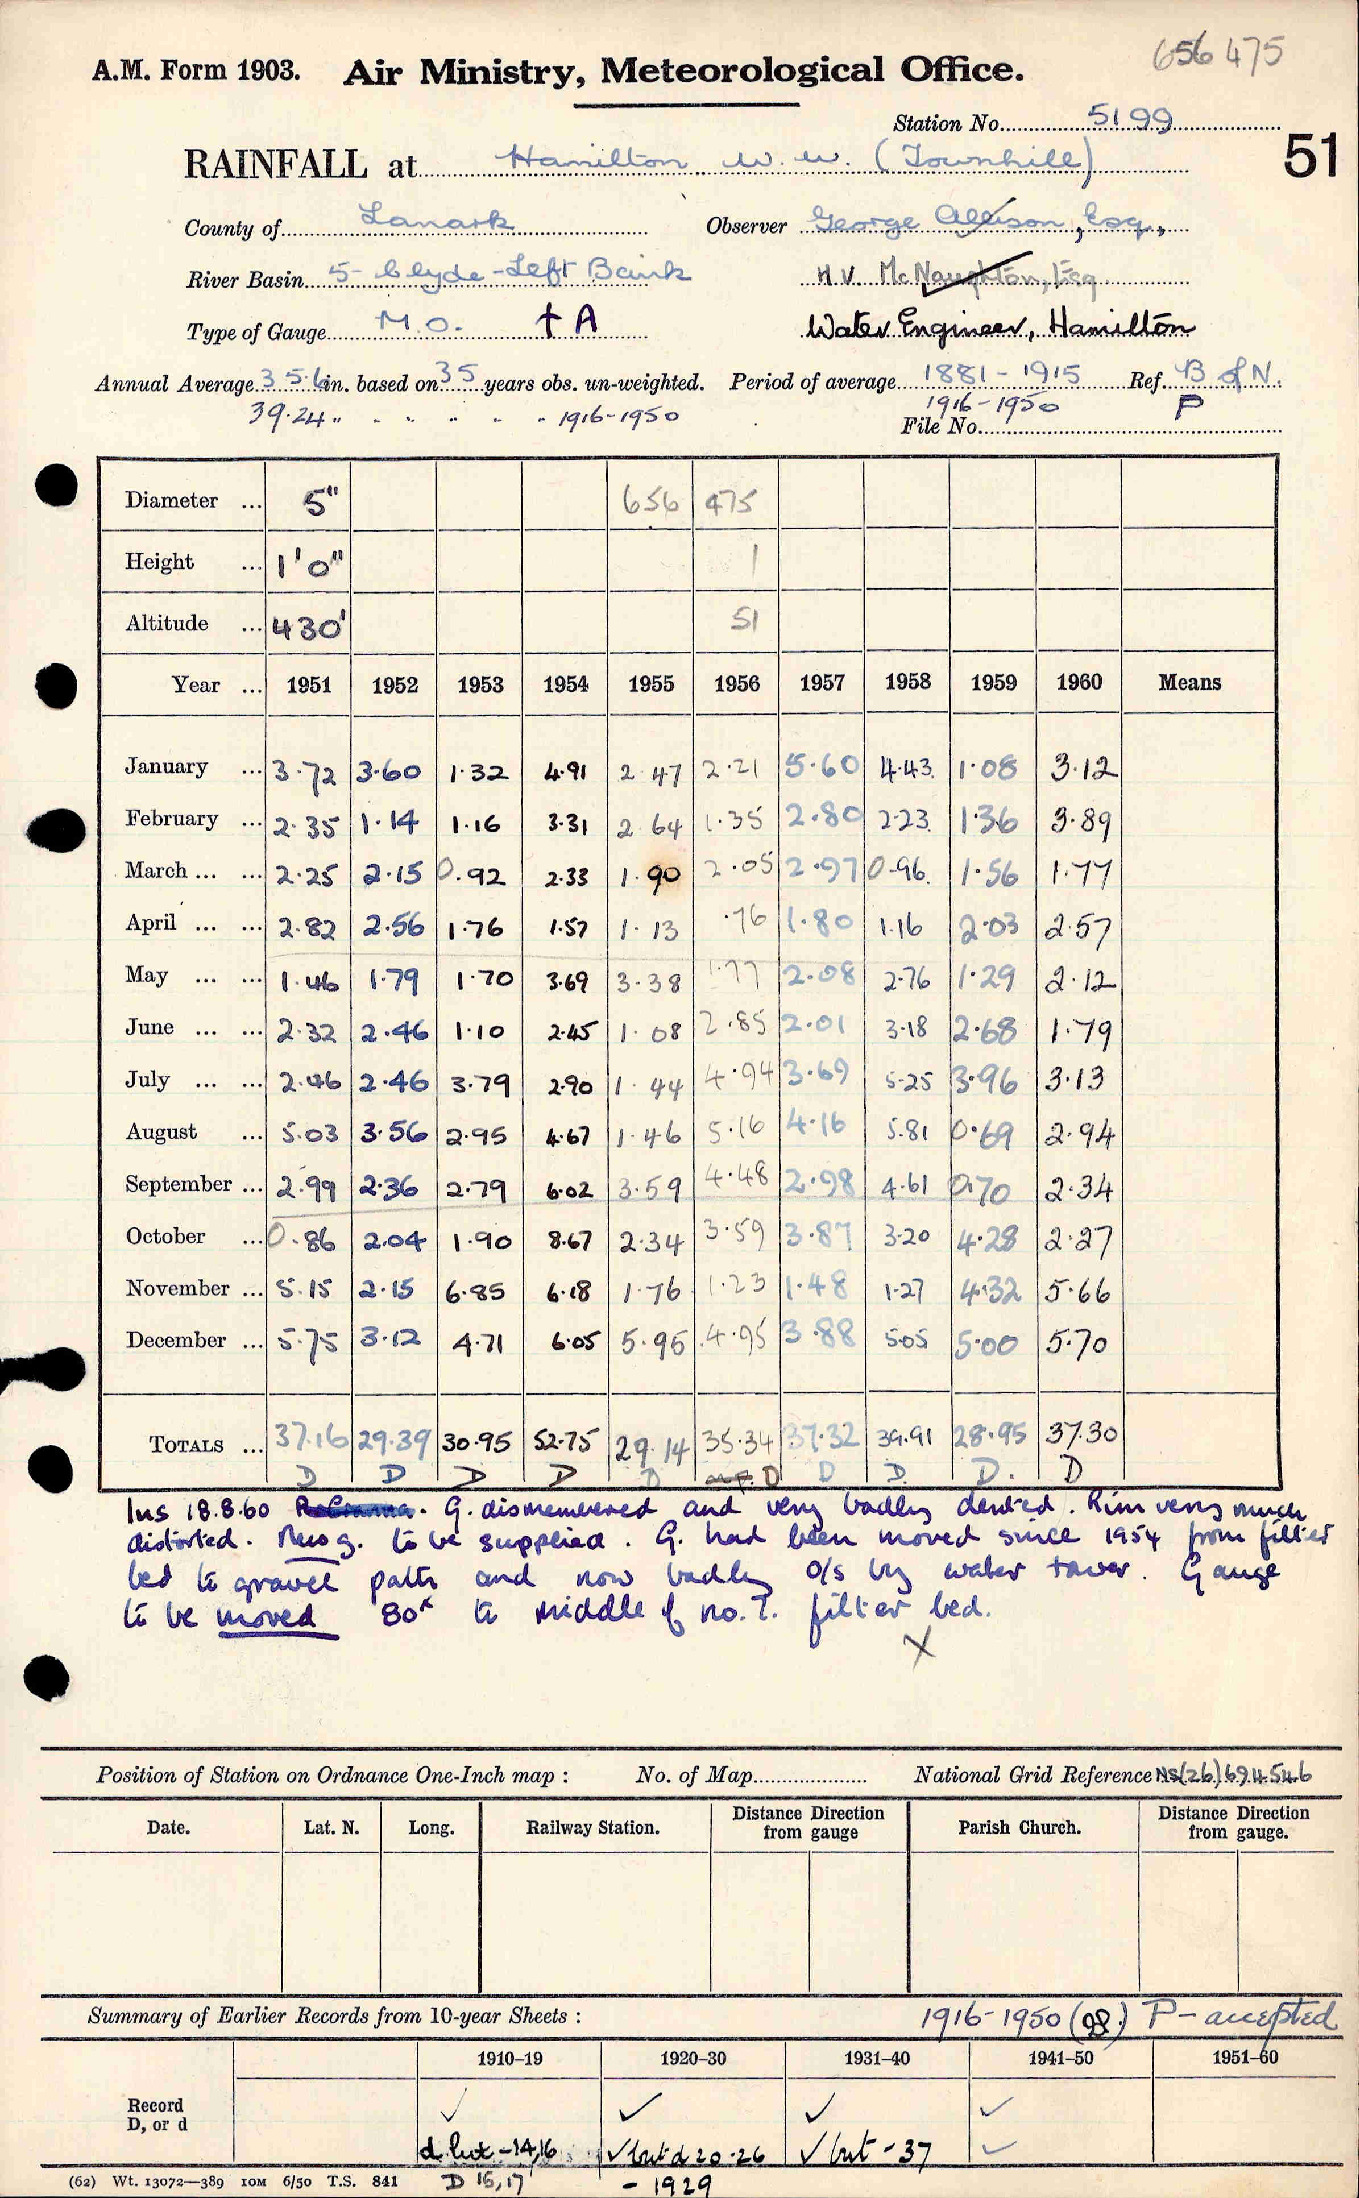 656 475
A.M. Form 1903. Air Ministry, Meteorological Office.
Station No. 5199
51
RAINFALL at Hamilton W.W. (Townhill)
County of Lanark Observer George Allison, Esq.,
River Basin 5- Clyde - Left Bank H.V. McNaughton, Esq
Type of Gauge M.O. † A Water Engineer, Hamilton
Annual Average 35.6 in. based on 35 years obs. un-weighted. Period of average 1881-1915 Ref. B of N.
39.24 " . . " . . 1916-1950 1916-1950 P
File No.
Diameter ... 5" 656 475
Height ... 1'0" 1
Altitude ... 430' 51
Year ... 1951 1952 1953 1954 1955 1956 1957 1958 1959 1960 Means
January ... 3.72 3.60 1.32 4.91 2.47 2.21 5.60 4.43. 1.08 3.12
February ... 2.35 1.14 1.16 3.31 2.64 1.35 2.80 2.23. 1.36 3.89
March ... ... 2.25 2.15 0.92 2.33 1.90 2.05 2.97 0.96. 1.56 1.77
April ... ... 2.82 2.56 1.76 1.57 1.13 .76 1.80 1.16 2.03 2.57
May ... ... 1.46 1.79 1.70 3.69 3.38 1.77 2.08 2.76 1.29 2.12
June ... ... 2.32 2.46 1.10 2.45 1.08 2.85 2.01 3.18 2.68 1.79
July ... ... 2.46 2.46 3.79 2.90 1.44 4.94 3.69 5.25 3.96 3.13
August ... 5.03 3.56 2.95 4.67 1.46 5.16 4.16 5.81 0.69 2.94
September ... 2.99 2.36 2.79 6.02 3.59 4.48 2.98 4.61 0.70 2.34
October ... 0.86 2.04 1.90 8.67 2.34 3.59 3.87 3.20 4.28 2.27
November ... 5.15 2.15 6.85 6.18 1.76 1.23 1.48 1.27 4.32 5.66
December ... 5.75 3.12 4.71 6.05 5.95 4.95 3.88 5.05 5.00 5.70
TOTALS ... 37.16 29.39 30.95 52.75 29.14 35.34 37.32 39.91 28.95 37.30
D D D D D D D D. D. D
Ins 18.8.60 . G. dismembered and very badly dented. Rim very much
distorted. New g. to be supplied. G. had been moved since 1954 from filter
bed to gravel path and now badly o/s by water tower. Gauge
to be moved 80x to middle of no. 7. filter bed.
X
Position of Station on Ordnance One-Inch map : No. of Map National Grid Reference NS(26)694546
Date. Lat. N. Long. Railway Station. Distance Direction from gauge Parish Church. Distance Direction from gauge.
Summary of Earlier Records from 10-year Sheets : 1916-1950 (98.) P - accepted
1910–19 1920–30 1931–40 1941–50 1951–60
Record ✓ ✓ ✓ ✓
D, or d d but -14,16 ✓ but d 20-26 ✓ but -37 ✓
(62) Wt. 13072—389 IOM 6/50 T.S. 841 D 15,17 - 1929